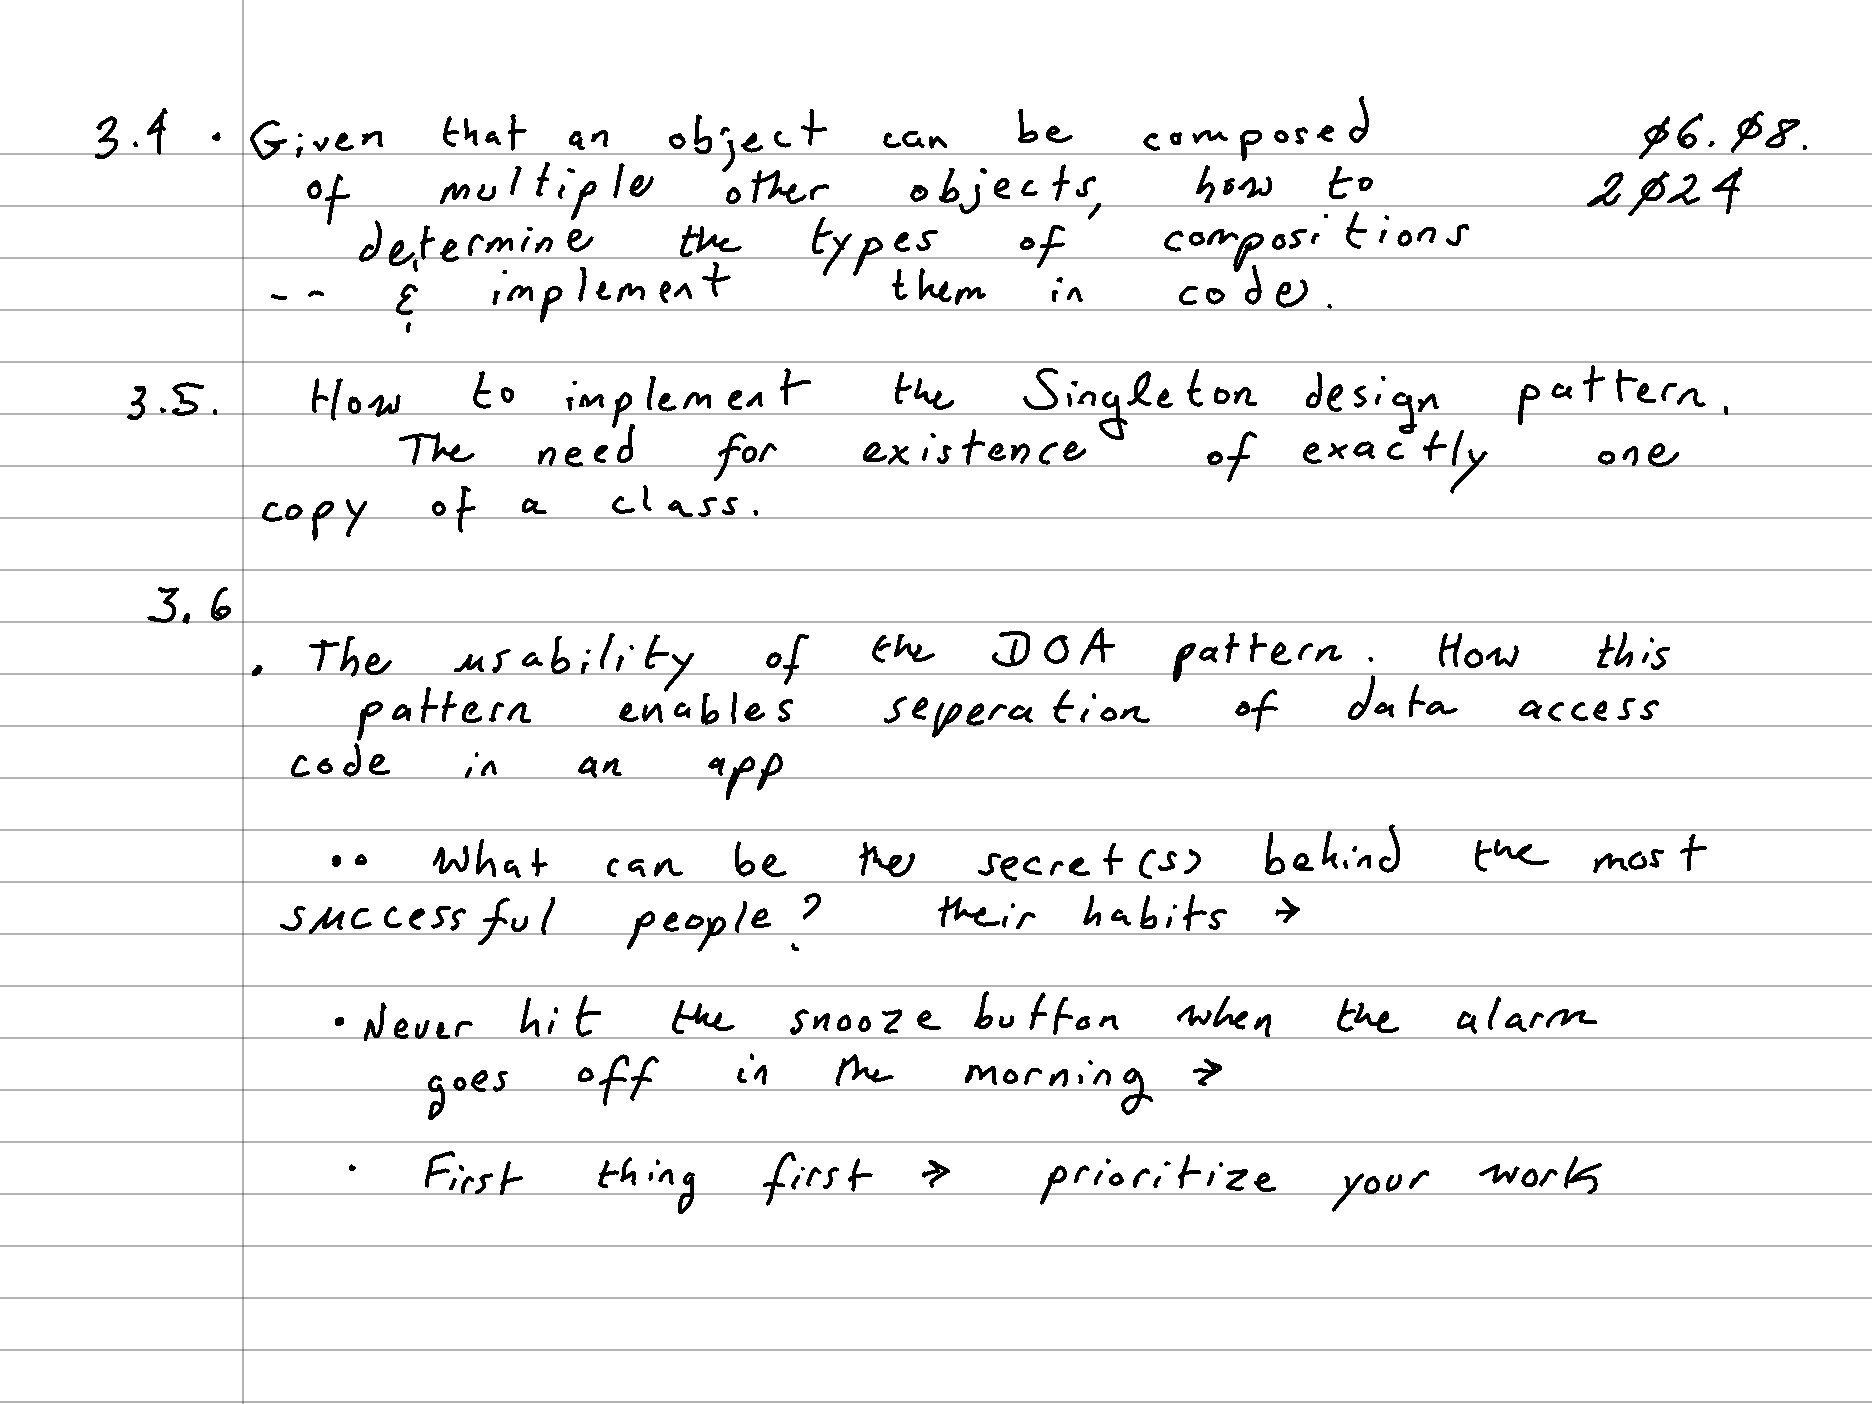 3.4 · Given that an object can be composed ø6.ø8.
of multiple other objects, how to 2ø24
determine the types of compositions
-- & implement them in code.
3.5. How to implement the Singleton design pattern.
The need for existence of exactly one
copy of a class.
3.6
. The usability of the DOA pattern. How this
pattern enables seperation of data access
code in an app
•• What can be the secret(s) behind the most
successful people? their habits →
• Never hit the snooze button when the alarm
goes off in the morning →
· First thing first → prioritize your work